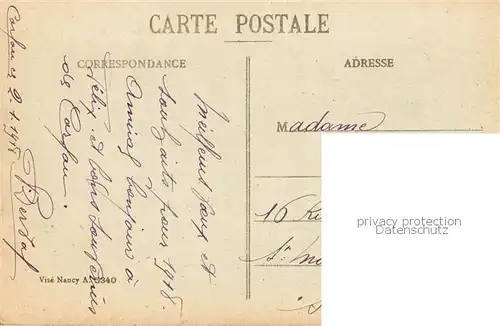 CARTE POSTALE
CORRESPONDANCE
ADRESSE
Corfou le 2-1-1918
Meilleurs vœux et
souhaits pour 1918.
Amical bonjour à
Félix et bons souvenirs
de Corfou.
Madame
16 R
St
privacy protection
www.oldthing.de
Visé Nancy A. 5340